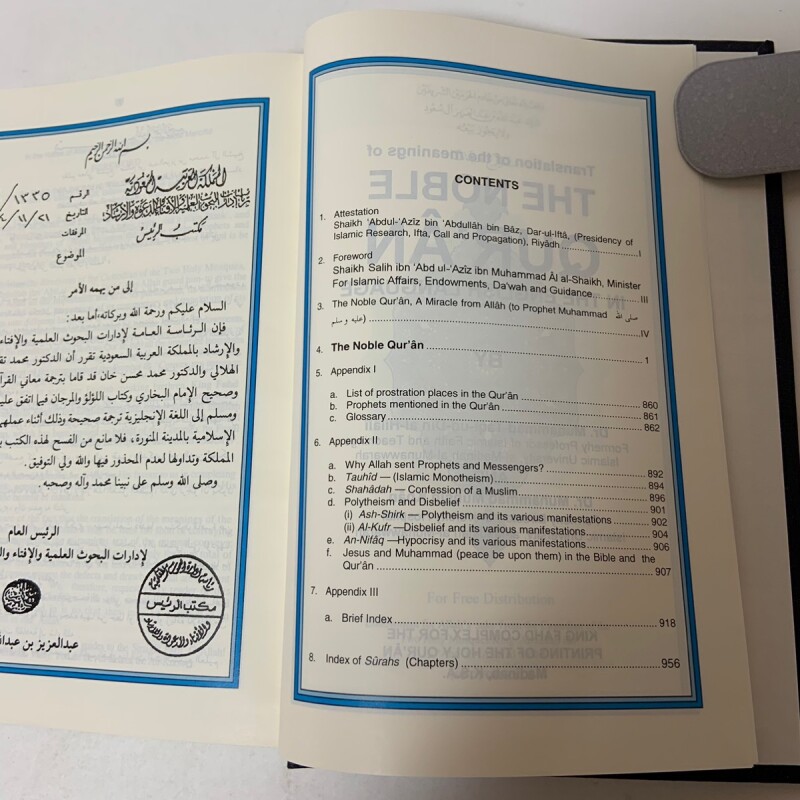 بسم الله الرحمن الرحيم
المملكة العربية السعودية
الرقم
التاريخ
مكتب الرئيس
المرفقات
الموضوع
إلى من يهمه الأمر
السلام عليكم ورحمة الله وبركاته، أما بعد:
فإن الرئاسة العامة لإدارات البحوث العلمية والإفتاء
والإرشاد بالمملكة العربية السعودية تقرر أن الدكتور محمد
الهلالي والدكتور محمد محسن خان قد قاما بترجمة معاني
وصحيح الإمام البخاري وكتاب اللؤلؤ والمرجان فيما اتفق
ومسلم إلى اللغة الإنجليزية ترجمة صحيحة وذلك أثناء عملهم
الإسلامية بالمدينة المنورة، فلا مانع من الفسح لهذه الكتب
المملكة وتداولها لعدم المحذور فيها والله ولي التوفيق.
وصلى الله وسلم على نبينا محمد وآله وصحبه.
الرئيس العام
لإدارات البحوث العلمية والإفتاء
مكتب الرئيس
عبدالعزيز بن
CONTENTS
1. Attestation
Shaikh 'Abdul-'Azîz bin 'Abdullâh bin Bâz, Dar-ul-Iftâ, (Presidency of
Islamic Research, Ifta, Call and Propagation), Riyâdh ... I
2. Foreword
Shaikh Salih ibn 'Abd ul-'Azîz ibn Muhammad Âl al-Shaikh, Minister
For Islamic Affairs, Endowments, Da'wah and Guidance ... III
3. The Noble Qur'ân, A Miracle from Allâh (to Prophet Muhammad صلى الله
عليه وسلم) ... IV
4. The Noble Qur'ân ... 1
5. Appendix I
a. List of prostration places in the Qur'ân ... 860
b. Prophets mentioned in the Qur'ân ... 861
c. Glossary ... 862
6. Appendix II
a. Why Allah sent Prophets and Messengers? ... 892
b. Tauhîd — (Islamic Monotheism) ... 894
c. Shahâdah — Confession of a Muslim ... 896
d. Polytheism and Disbelief ... 901
(i) Ash-Shirk — Polytheism and its various manifestations ... 902
(ii) Al-Kufr —Disbelief and its various manifestations ... 904
e. An-Nifâq —Hypocrisy and its various manifestations ... 906
f. Jesus and Muhammad (peace be upon them) in the Bible and the
Qur'ân ... 907
7. Appendix III
a. Brief Index ... 918
8. Index of Sûrahs (Chapters) ... 956